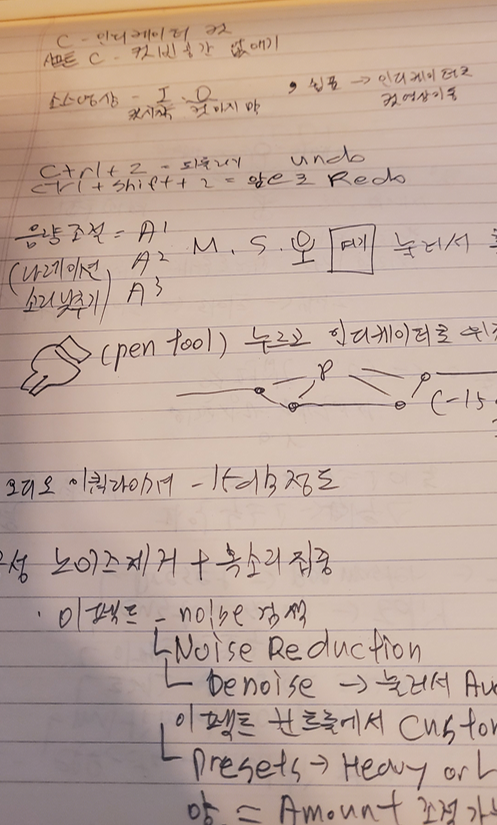 C - 인디케이터 컷
쉬프트 C - 컷 빈공간 없애기
소스영상 - I . O
컷시작 컷 마지막
, 쉼표 → 인디케이터로
컷영상 기능
Ctrl + Z = 되돌리기 undo
Ctrl + Shift + Z = 앞으로 Redo
음량조절 = A1
(나레이션 A2 M . S . 옆 여기 눌러서
소리 낮추기) A3
(pen tool) 누르고 인디케이터를
P
(-15
오디오 이퀄라이저 - 15dB 정도
노이즈제거 + 목소리 집중
· 이펙트 - noise 검색
Noise Reduction
Denoise → 눌러서
이펙트 컨트롤에서
Presets → Heavy or
양 = Amount 조절